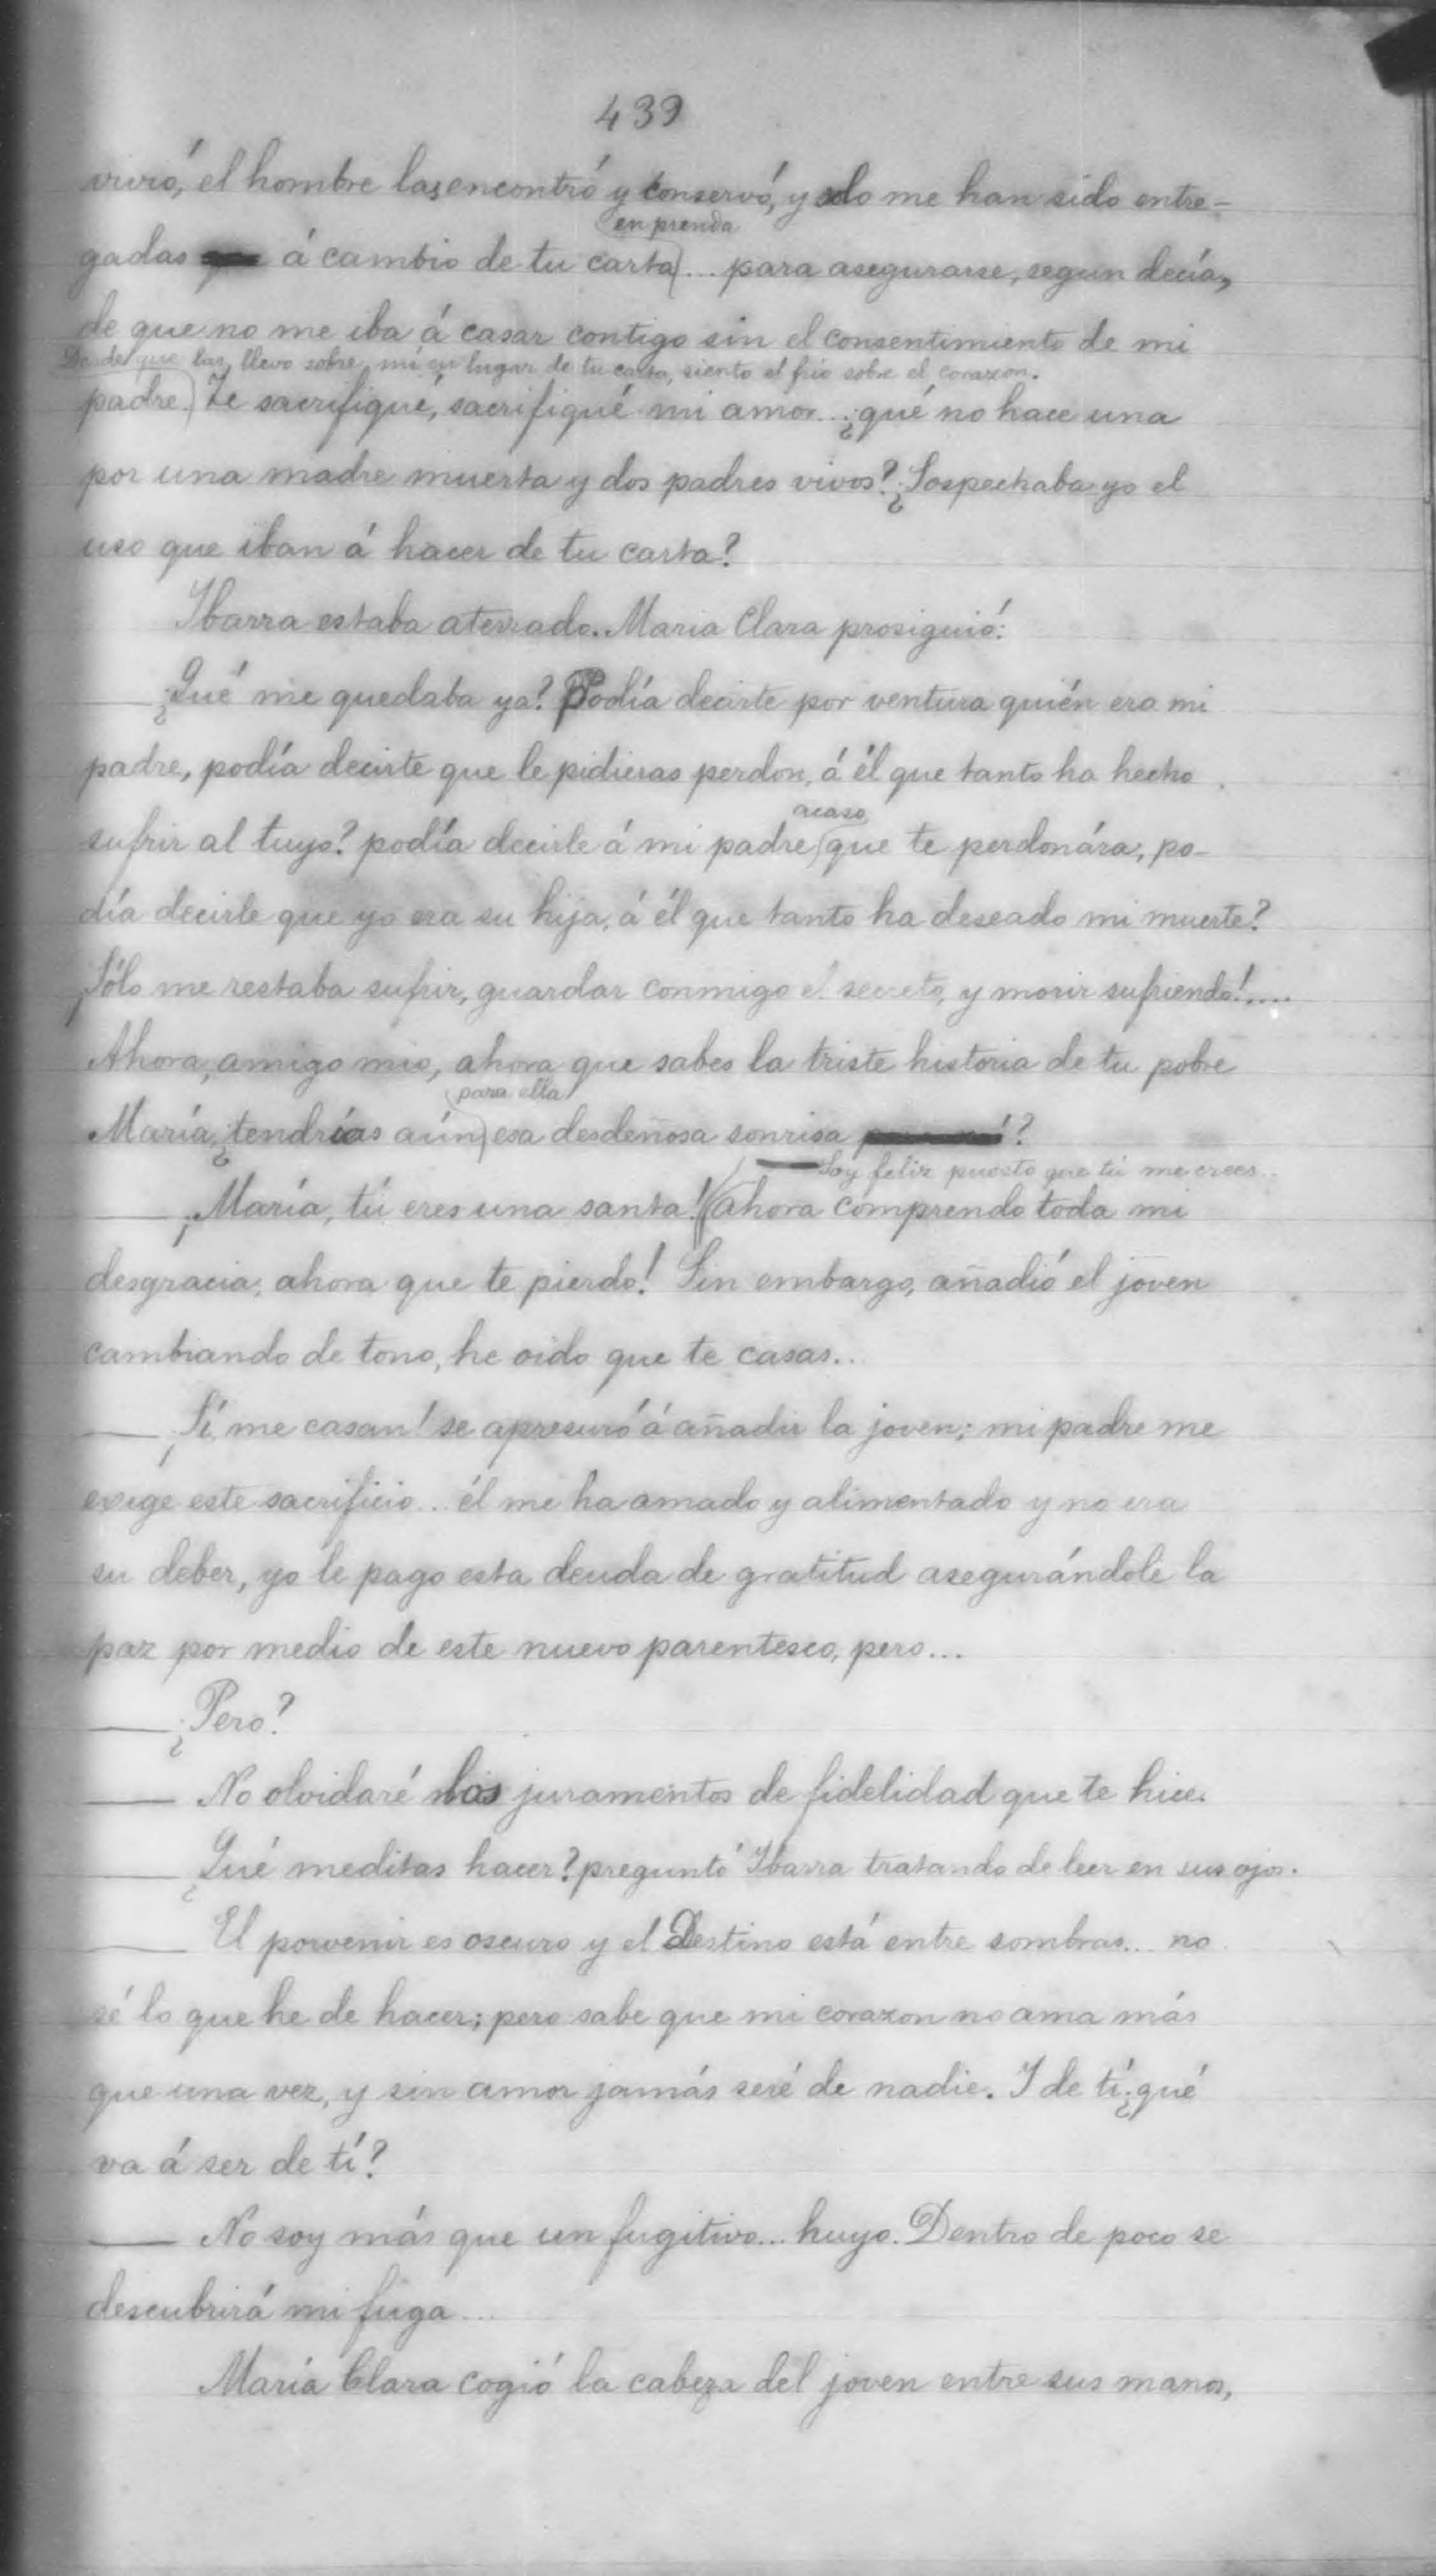 439
vivió, el hombre las encontró y conservó, y solo me han sido entre-
en prenda
gadas á cambio de tu carta... para asegurarse, segun decía,
de que no me iba á casar contigo sin el consentimiento de mi
Desde que las llevo sobre mí en lugar de tu carta, siento el frio sobre el corazon.
padre. Te sacrifiqué, sacrifiqué mi amor... ¿qué no hace una
por una madre muerta y dos padres vivos? ¿Sospechaba yo el
uso que iban á hacer de tu carta?
Ibarra estaba aterrado. Maria Clara prosiguió:
— ¿Qué me quedaba ya? Podía decirte por ventura quién era mi
padre, podía decirte que le pidieras perdon, á él que tanto ha hecho
acaso
sufrir al tuyo? podía decirle á mi padre que te perdonára, po-
día decirle que yo era su hija, á él que tanto ha deseado mi muerte?
¡Sólo me restaba sufrir, guardar conmigo el secreto, y morir sufriendo!....
Ahora, amigo mio, ahora que sabes la triste historia de tu pobre
para ella
María, ¿tendrías aún esa desdeñosa sonrisa ?
— Soy feliz puesto que tú me crees...
— ¡María, tú eres una santa! ahora comprendo toda mi
desgracia, ahora que te pierdo! Sin embargo, añadió el joven
cambiando de tono, he oido que te casas...
— ¡Sí, me casan! se apresuró á añadir la joven; mi padre me
exige este sacrificio... él me ha amado y alimentado y no era
su deber, yo le pago esta deuda de gratitud asegurándole la
paz por medio de este nuevo parentesco, pero...
— ¿Pero?
— No olvidaré los juramentos de fidelidad que te hice.
— ¿Qué meditas hacer? preguntó Ibarra tratando de leer en sus ojos.
— El porvenir es oscuro y el Destino está entre sombras... no
sé lo que he de hacer; pero sabe que mi corazon no ama más
que una vez, y sin amor jamás seré de nadie. I de tí ¿qué
va á ser de tí?
— No soy más que un fugitivo... huyo. Dentro de poco se
descubrirá mi fuga...
María Clara cogió la cabeza del joven entre sus manos,